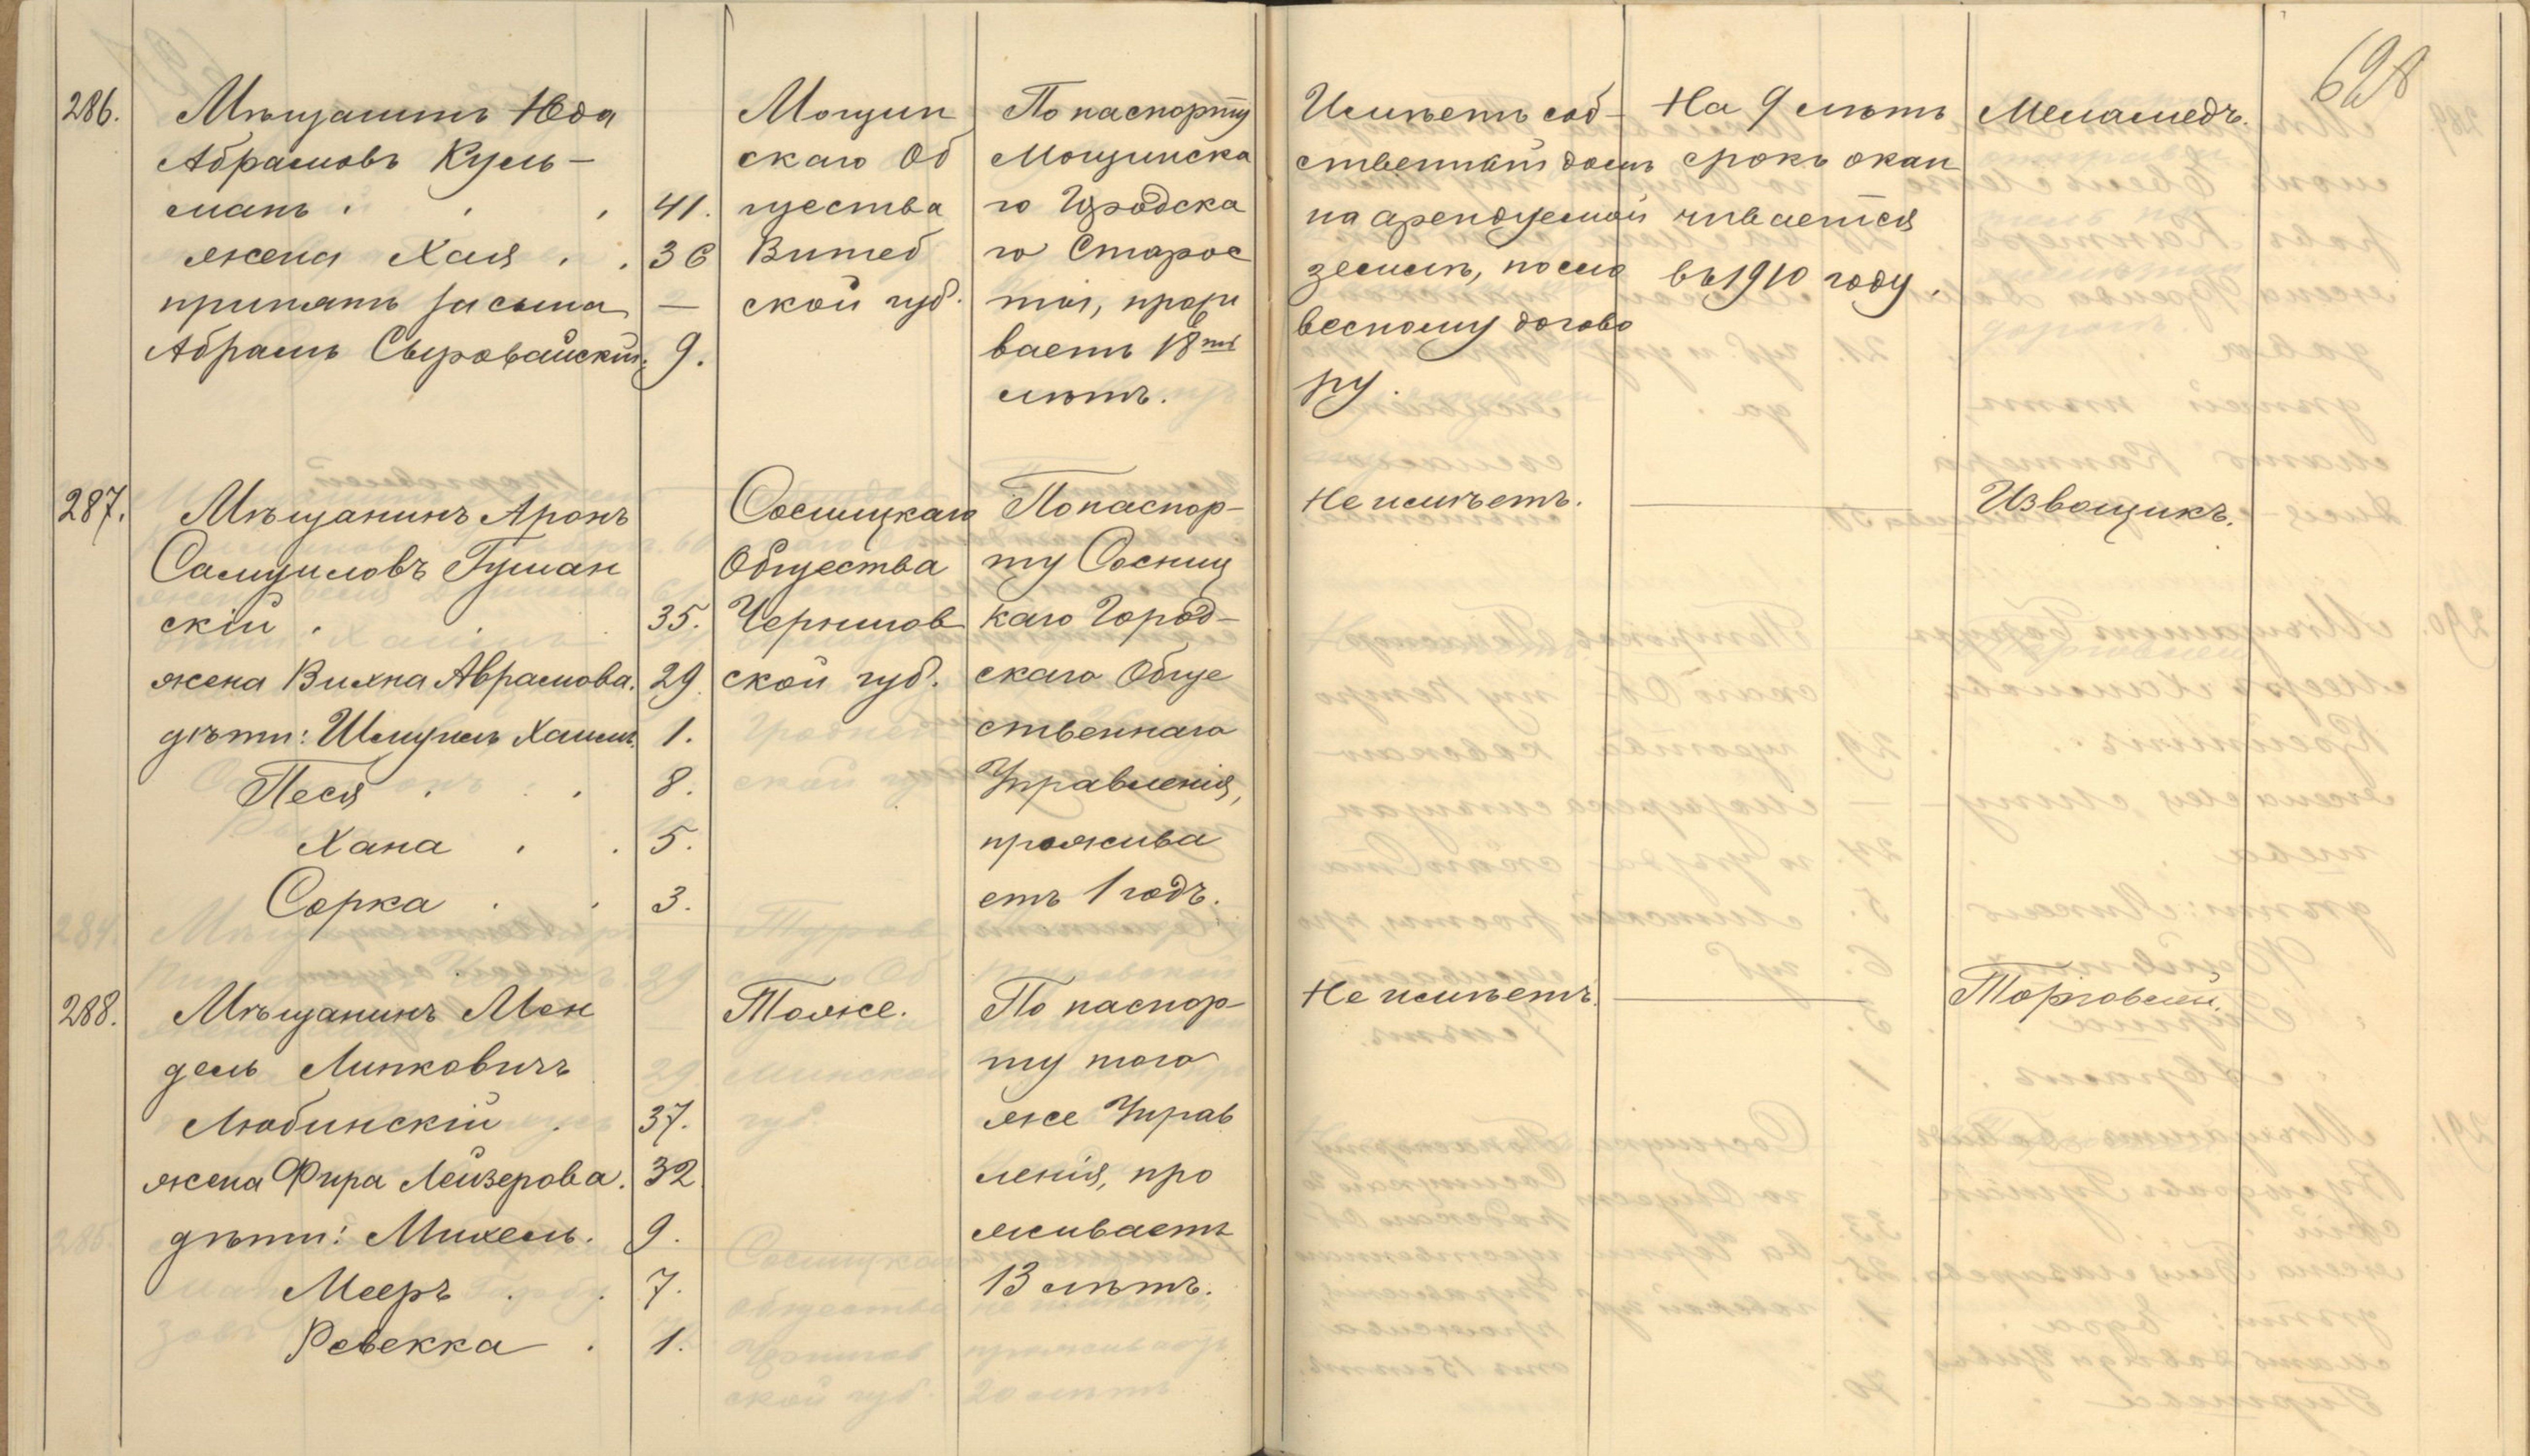 628
286.
Мѣщанинъ Юда
Абрамовъ Куль-
манъ . . . 41.
жена Хая . . 36
принятъ за сына —
Абрамъ Сыровайскій. 9.
Мощин
скаго Об
щества
Витеб
ской губ.
По паспорту
Мощинска
го Городска
го Старос
ты, прожи
ваетъ 18ть
лѣтъ.
Имѣетъ соб-
ственный домъ
на арендуемой
землѣ, по сло
весному догово
ру.
На 9 лѣтъ
срокъ окан
чивается
въ 1910 году.
Меламедъ.
287.
Мѣщанинъ Аронъ
Самуиловъ Гуман
скій . . . 35.
жена Вихна Аврамова. 29.
дѣти: Шмуилъ Хаимъ. 1.
Песя . . . 8.
Хана . . 5.
Сорка . . 3.
Сосницкаго
Общества
Чернигов
ской губ.
По паспор-
ту Сосниц
каго Город-
скаго Обще
ственнаго
Управленія,
прожива
етъ 1 годъ.
Не имѣетъ.
—
Извощикъ.
288.
Мѣщанинъ Мен
дель Липковичъ
Любинскій . 37.
жена Фира Лейзерова. 32.
дѣти: Михель. 9.
Мееръ . . 7.
Ревекка . 1.
Тоже.
По паспор-
ту того
же Управ
ленія, про
живаетъ
13 лѣтъ.
Не имѣетъ.
—
Торговлей.